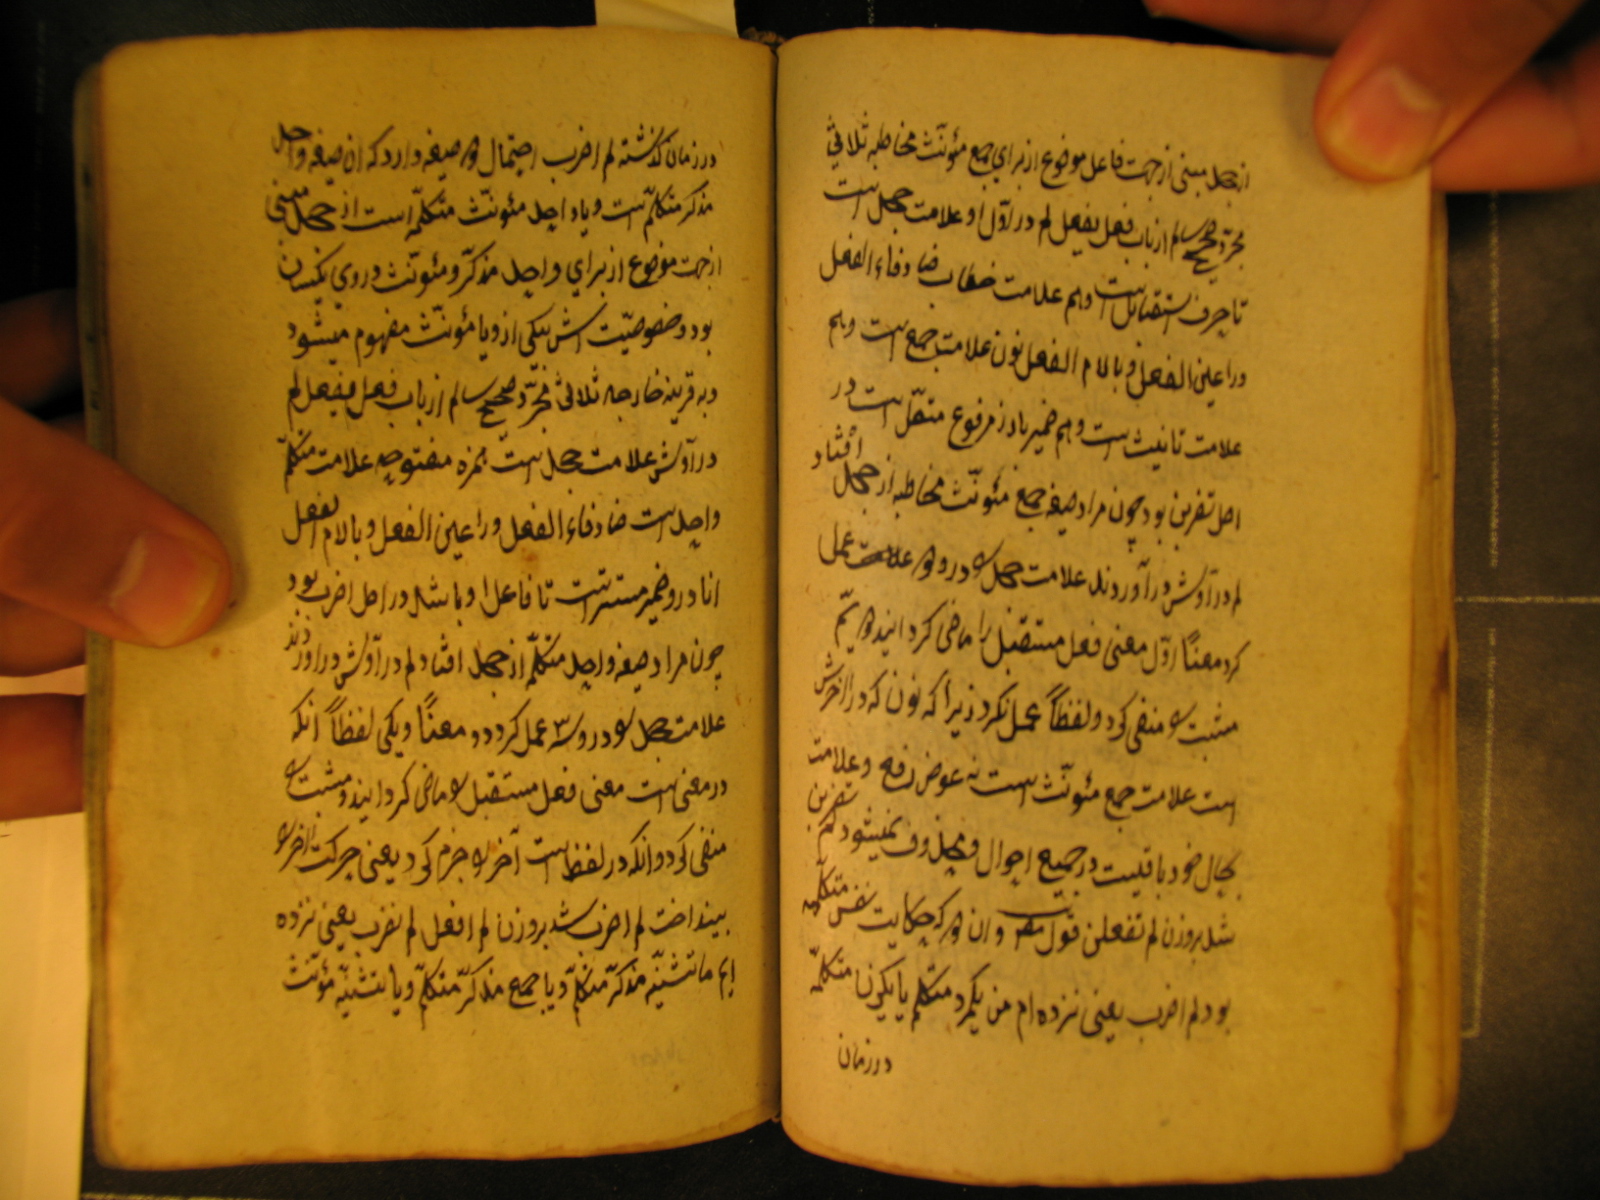 از جحد مبنی از جهت فاعل موضوع از برای جمع مئونّث مخاطبه ثلاثی
مجرّد صحیح سالم از باب فعل یفعل لم در اوّل او علامت جحد است
تا حرف استقبال است وهم علامت خطاب ضاد فاء الفعل
ورا عین الفعل وبا لام الفعل نون علامت جمع است وهم
علامت تانیث است وهم ضمیر بارز مرفوع متصّل است در
اصل تضربن بود چون مراد صیغه جمع مئونّث مخاطبه از جحد افتاد
لم در اوّلش در آوردند علامت جحد در علامت عمل
کرد معناً اوّل معنی فعل مستقبل را ماضی کردانید
مثبت منفی کرد ولفظاً عمل نکرد زیرا که نون که در آخرش
است علامت جمع مئونّث است نه عوض رفع وعلامت
بحال خود باقیست در جمیع احوال ومحذوف نمیشود لم تضربن
شد بروزن لم تفعلن قول وان که حکایت نفس متکلّم
بود لم اضرب یعنی نزده ام من یکمرد متکلّم یا یکزن متکلّمه
در زمان
در زمان کذشته لم اضرب احتمال صیغه دارد که ان صیغه واحد
مذکر متکلّم است ویا واحد مئونّث متکلّمه است از جحد مبنی
از جهت موضوع از برای واحد مذکّر ومئونّث در وی یکسان
بود وخصوصیّت اش یکی از ویا مئونّث مفهوم میشود
وبه قرینه خارجه ثلاثی مجرّد صحیح سالم از باب فعل یفعل لم
در اوّلش علامت جحد است همزه مفتوحه علامت متکلّم
واحد است ضاد فاء الفعل ورا عین الفعل وبا لام الفعل
انا در و ضمیر مستتر است تا فاعل او باشد در اصل اضرب بود
چون مراد صیغه واحد متکلّم از جحد افتاد لم در اوّلش در اوردند
علامت جحد در عمل کرد دو معناً ویکی لفظاً انکه
در معنی است معنی فعل مستقبل ماضی کردانید ومثبت
منفی کرد وانکه در لفظ است آخر جزم کرد یعنی حرکت آخر
بینداخت لم اضرب شد بروزن لم افعل لم نضرب یعنی نزده
ایم ما تثنیّه مذکّر متکلّم ویا جمع مذکّر متکلّم ویا تثنیّه مؤنّث